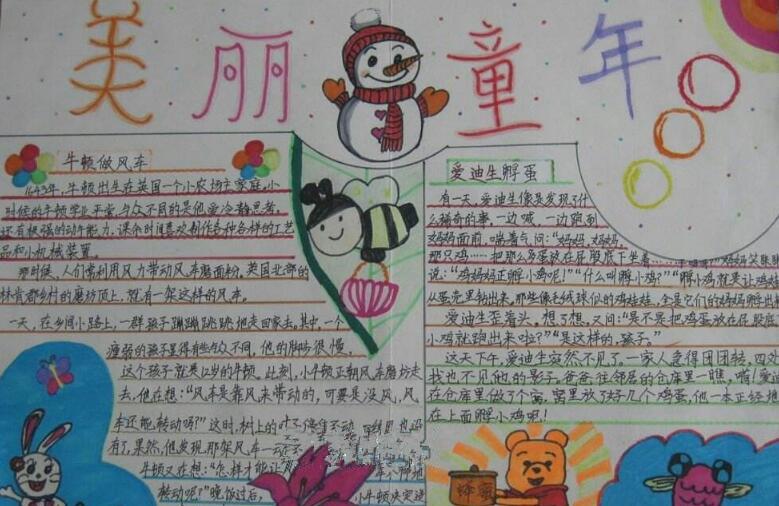 美丽童年
牛顿做风车
1643年，牛顿出生在英国一个小农场主家庭。小
时候的牛顿学业平常，与众不同的是他爱冷静思考，
还有极强的动手能力，课余时间喜欢制作各种各样的工艺
品和小机械装置。
那时候，人们常利用风力带动风车磨面粉，英国北部的
林肯郡乡村的磨坊顶上，就有一架这样的风车。
一天，在乡间小路上，一群孩子蹦蹦跳跳地走回家去。其中，一个
瘦弱的孩子显得有些与众不同，他的脚步很慢，
这个孩子就是12岁的牛顿。此刻，小牛顿正朝风车磨坊走
去，他在想：“风车是靠风来带动的，可要是没风，风
车还能转动吗？”这时，树上的叶子停住不动，
有了。果然，他发现那架风车一动不
牛顿又在想：“怎样才能让那
转动呢？”晚饭过后，小牛顿决定
爱迪生孵蛋
有一天，爱迪生像是发现了什
么稀奇的事，一边喊，一边跑到
妈妈面前，喘着气问：“妈妈，妈妈，
那只鸡……把那么多蛋放在屁股底下坐着
说：“鸡妈妈正孵小鸡呢！”“什么叫孵小鸡？”“孵小鸡就是让鸡娃
从蛋壳里钻出来，那些像毛绒球似的鸡娃娃，全是它们的妈妈孵出
爱迪生歪着头，想了想，又问：“是不是把鸡蛋放在屁股底下
小鸡就跑出来啦？”“是这样的，孩子。”
这天下午，爱迪生突然不见了。一家人急得团团转，四处
找也不见他的影子。爸爸往邻居的仓库里一瞧，嗬！爱迪
在仓库里做了个窝，窝里放了好几个鸡蛋，他一本正经地
在上面孵小鸡呢！
蜂蜜